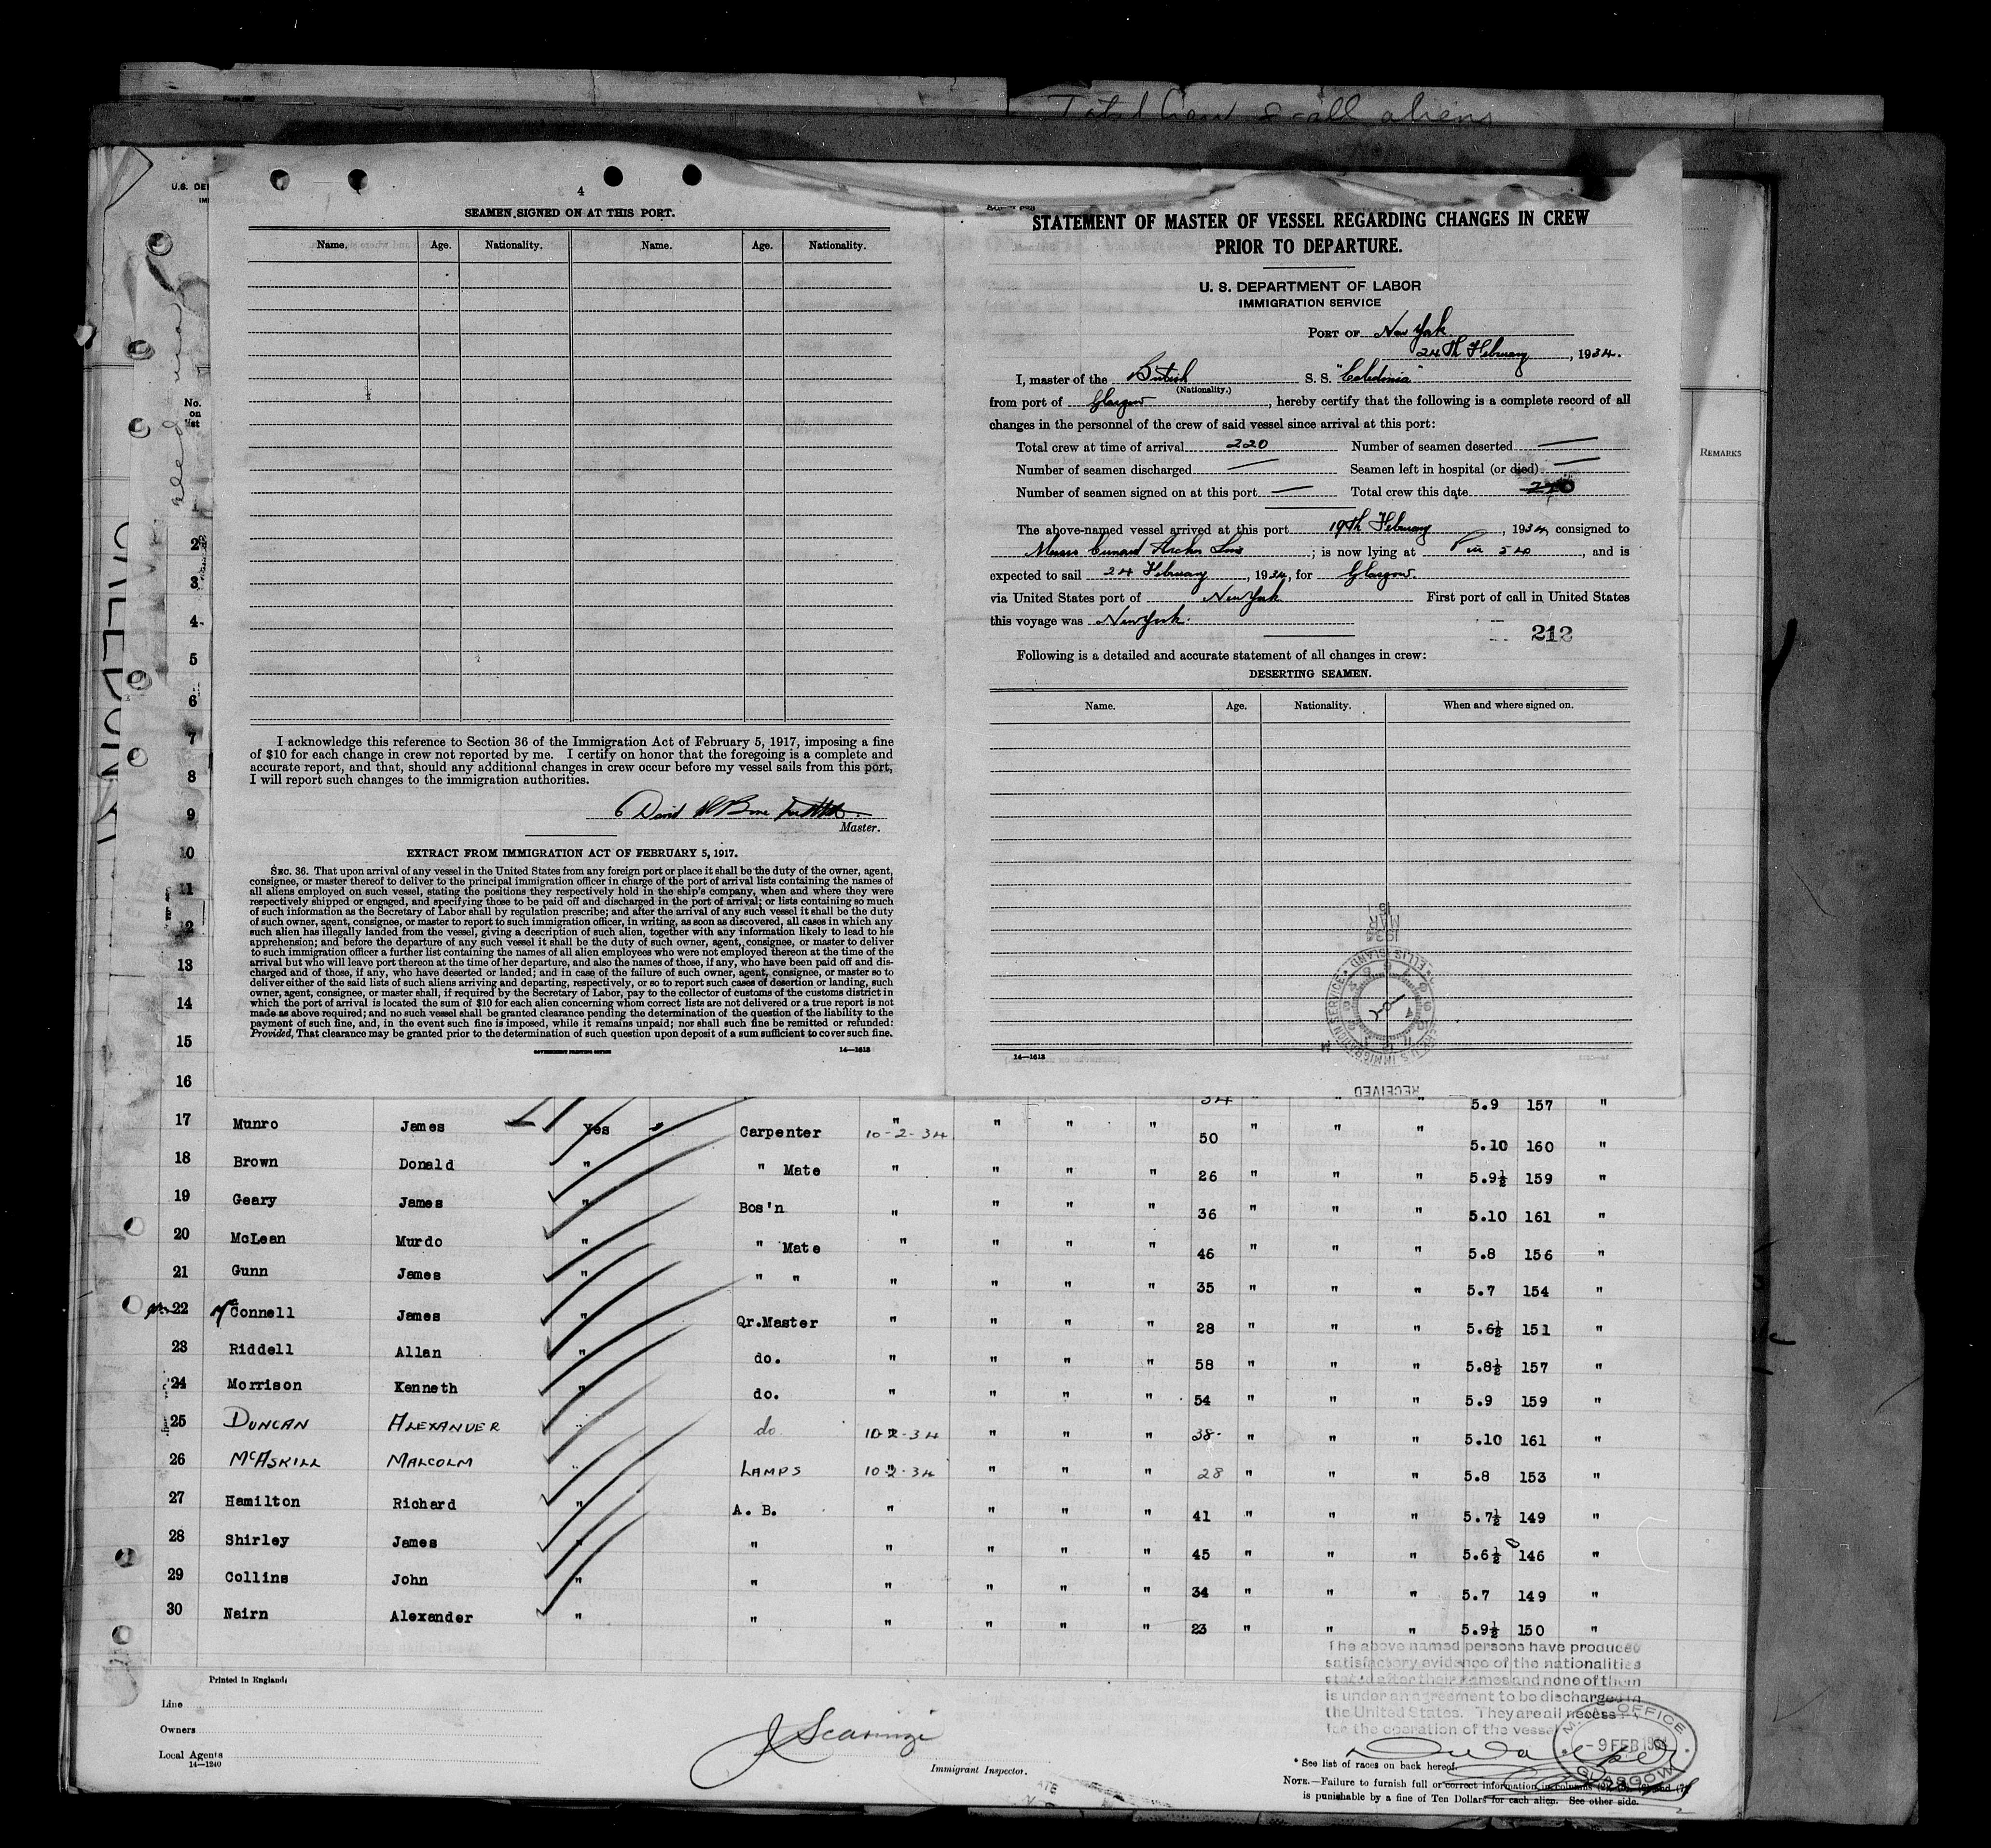 Total Crew 8 - all aliens
U.S. DE
4
SEAMEN SIGNED ON AT THIS PORT.
Name. Age. Nationality. Name. Age. Nationality.
I acknowledge this reference to Section 36 of the Immigration Act of February 5, 1917, imposing a fine
of $10 for each change in crew not reported by me. I certify on honor that the foregoing is a complete and
accurate report, and that, should any additional changes in crew occur before my vessel sails from this port,
I will report such changes to the immigration authorities.
David W Bone
Master.
EXTRACT FROM IMMIGRATION ACT OF FEBRUARY 5, 1917.
SEC. 36. That upon arrival of any vessel in the United States from any foreign port or place it shall be the duty of the owner, agent,
consignee, or master thereof to deliver to the principal immigration officer in charge of the port of arrival lists containing the names of
all aliens employed on such vessel, stating the positions they respectively hold in the ship's company, when and where they were
respectively shipped or engaged, and specifying those to be paid off and discharged in the port of arrival; or lists containing so much
of such information as the Secretary of Labor shall by regulation prescribe; and after the arrival of any such vessel it shall be the duty
of such owner, agent, consignee, or master to report to such immigration officer, in writing, as soon as discovered, all cases in which any
such alien has illegally landed from the vessel, giving a description of such alien, together with any information likely to lead to his
apprehension; and before the departure of any such vessel it shall be the duty of such owner, agent, consignee, or master to deliver
to such immigration officer a further list containing the names of all alien employees who were not employed thereon at the time of the
arrival but who will leave port thereon at the time of her departure, and also the names of those, if any, who have been paid off and dis-
charged and of those, if any, who have deserted or landed; and in case of the failure of such owner, agent, consignee, or master so to
deliver either of the said lists of such aliens arriving and departing, respectively, or so to report such cases of desertion or landing, such
owner, agent, consignee, or master shall, if required by the Secretary of Labor, pay to the collector of customs of the customs district in
which the port of arrival is located the sum of $10 for each alien concerning whom correct lists are not delivered or a true report is not
made as above required; and no such vessel shall be granted clearance pending the determination of the question of the liability to the
payment of such fine, and, in the event such fine is imposed, while it remains unpaid; nor shall such fine be remitted or refunded:
Provided, That clearance may be granted prior to the determination of such question upon deposit of a sum sufficient to cover such fine.
GOVERNMENT PRINTING OFFICE 14—1613
STATEMENT OF MASTER OF VESSEL REGARDING CHANGES IN CREW
PRIOR TO DEPARTURE.
U. S. DEPARTMENT OF LABOR
IMMIGRATION SERVICE
PORT OF New York
24Th February, 1934.
I, master of the British S. S. "Caledonia"
(Nationality.)
from port of Glasgow, hereby certify that the following is a complete record of all
changes in the personnel of the crew of said vessel since arrival at this port:
Total crew at time of arrival 220 Number of seamen deserted —
Number of seamen discharged — Seamen left in hospital (or died) —
Number of seamen signed on at this port — Total crew this date 220
The above-named vessel arrived at this port 19Th February, 1934, consigned to
Messrs Cunard Anchor Line; is now lying at Pier 54, and is
expected to sail 24 February, 1934, for Glasgow.
via United States port of New York First port of call in United States
this voyage was New York.
212
Following is a detailed and accurate statement of all changes in crew:
DESERTING SEAMEN.
Name. Age. Nationality. When and where signed on.
1934
MAR
U.S. IMMIGRATION SERVICE
ELLIS ISLAND
RECEIVED
14—1613
REMARKS
No.
on
list
CALEDONIA
2
3
4
5
6
7
8
9
10
11
12
13
14
15
16 5.9 157 "
17 Munro James Yes " Carpenter 10-2-34 " " " 50 " " " 5.10 160 "
18 Brown Donald " " Mate " " " " 26 " " " 5.9½ 159 "
19 Geary James " Bos'n " " " " 36 " " " 5.10 161 "
20 McLean Murdo " " Mate " " " " 46 " " " 5.8 156 "
21 Gunn James " " " " " " " 35 " " " 5.7 154 "
22 McConnell James " Qr.Master " " " " 28 " " " 5.6½ 151 "
23 Riddell Allan " do. " " " " 58 " " " 5.8½ 157 "
24 Morrison Kenneth " do. " " " " 54 " " " 5.9 159 "
25 DUNCAN ALEXANDER " do 10-2-34 " " " 38 " " " 5.10 161 "
26 McASKILL MALCOLM " LAMPS 10-2-34 " " " 28 " " " 5.8 153 "
27 Hamilton Richard " A. B. " " " " 41 " " " 5.7½ 149 "
28 Shirley James " " " " " " 45 " " " 5.6½ 146 "
29 Collins John " " " " " " 34 " " " 5.7 149 "
30 Nairn Alexander " " " " " " 23 " " " 5.9½ 150 "
The above named persons have produced
satisfactory evidence of the nationalities
stated after their names and none of them
is under an agreement to be discharged in
the United States. They are all necess
for the operation of the vessel
Printed in England.
Line
Owners
Local Agents
14—1240
J Scaringi
Immigrant Inspector.
OFFICE
- 9 FEB 1934
GLASGOW
* See list of races on back hereof.
NOTE.—Failure to furnish full or correct information in columns
is punishable by a fine of Ten Dollars for each alien. See other side.